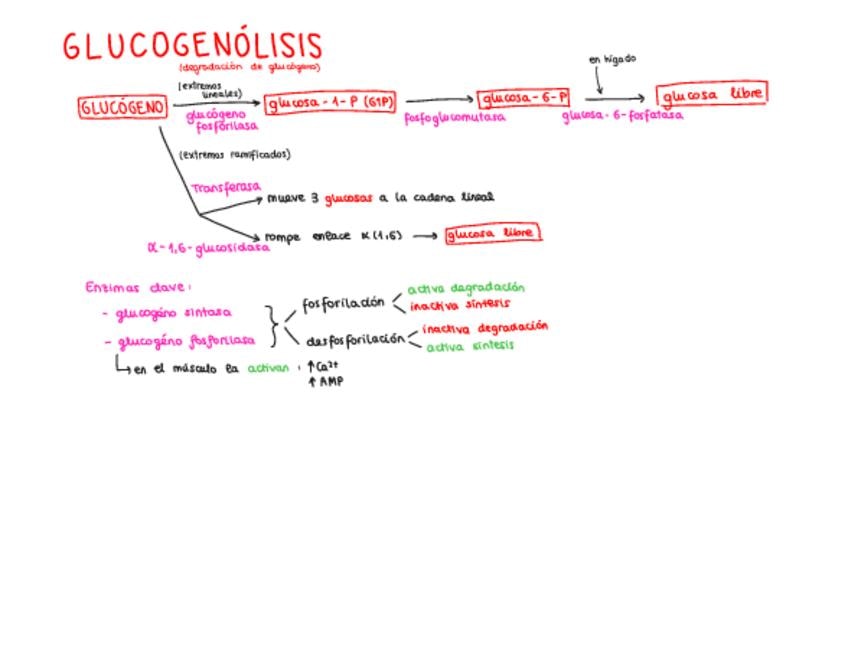 GLUCOGENÓLISIS
(degradación de glucógeno)
en hígado
(extremos
lineales)
GLUCÓGENO
glucosa-1-P (G1P)
glucosa-6-P
glucosa libre
glucógeno
fosforilasa
fosfoglucomutasa
glucosa-6-fosfatasa
(extremos ramificados)
Transferasa
mueve 3 glucosas a la cadena lineal
rompe enlace α(1,6) → glucosa libre
α-1,6-glucosidasa
Enzimas clave:
- glucogéno sintasa
- glucogéno fosforilasa
fosforilación
activa degradación
inactiva síntesis
desfosforilación
inactiva degradación
activa síntesis
en el músculo la activan: ↑Ca2+
↑ AMP